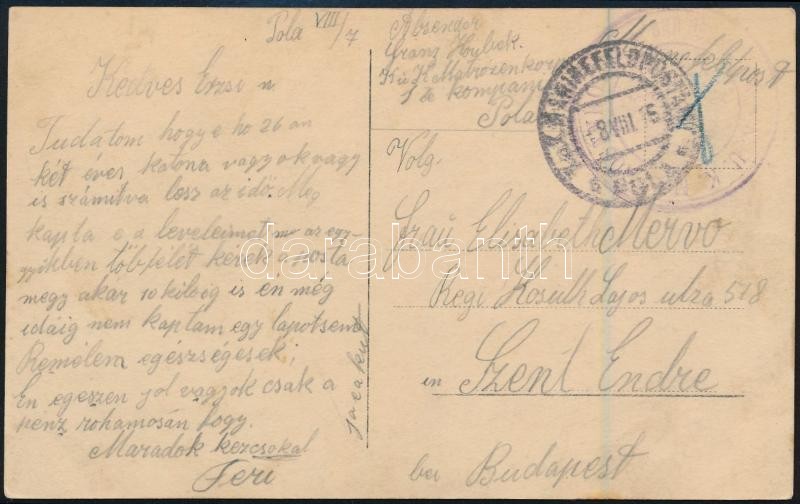 Pola VIII/7
Kedves Erzsi n.
Tudatom hogy e ho 26 an
két éves katona vagyok vagy
is számitva lesz az idő. Meg
kapta e a leveleimet
töbfelét kérek a posta
megy akar 10 kiloig is én még
idáig nem kaptam egy lapot sem
Remélem egészségesek,
Én egeszen jol vagyok csak a
penz rohamosán fogy.
Maradok kezcsokal
Feri
Absender
Franz Hybek.
K u K Matrozenkorp
1 te kompanie
Pola
Marinefeldpost
K.u.K. MARINEFELDPOSTAMT
8 VIII 15
POLA
Volg.
Frau Elisabeth Mervo
Regi Kosuth Lajos utza 518
in Szent Endre
bei Budapest
darabanth